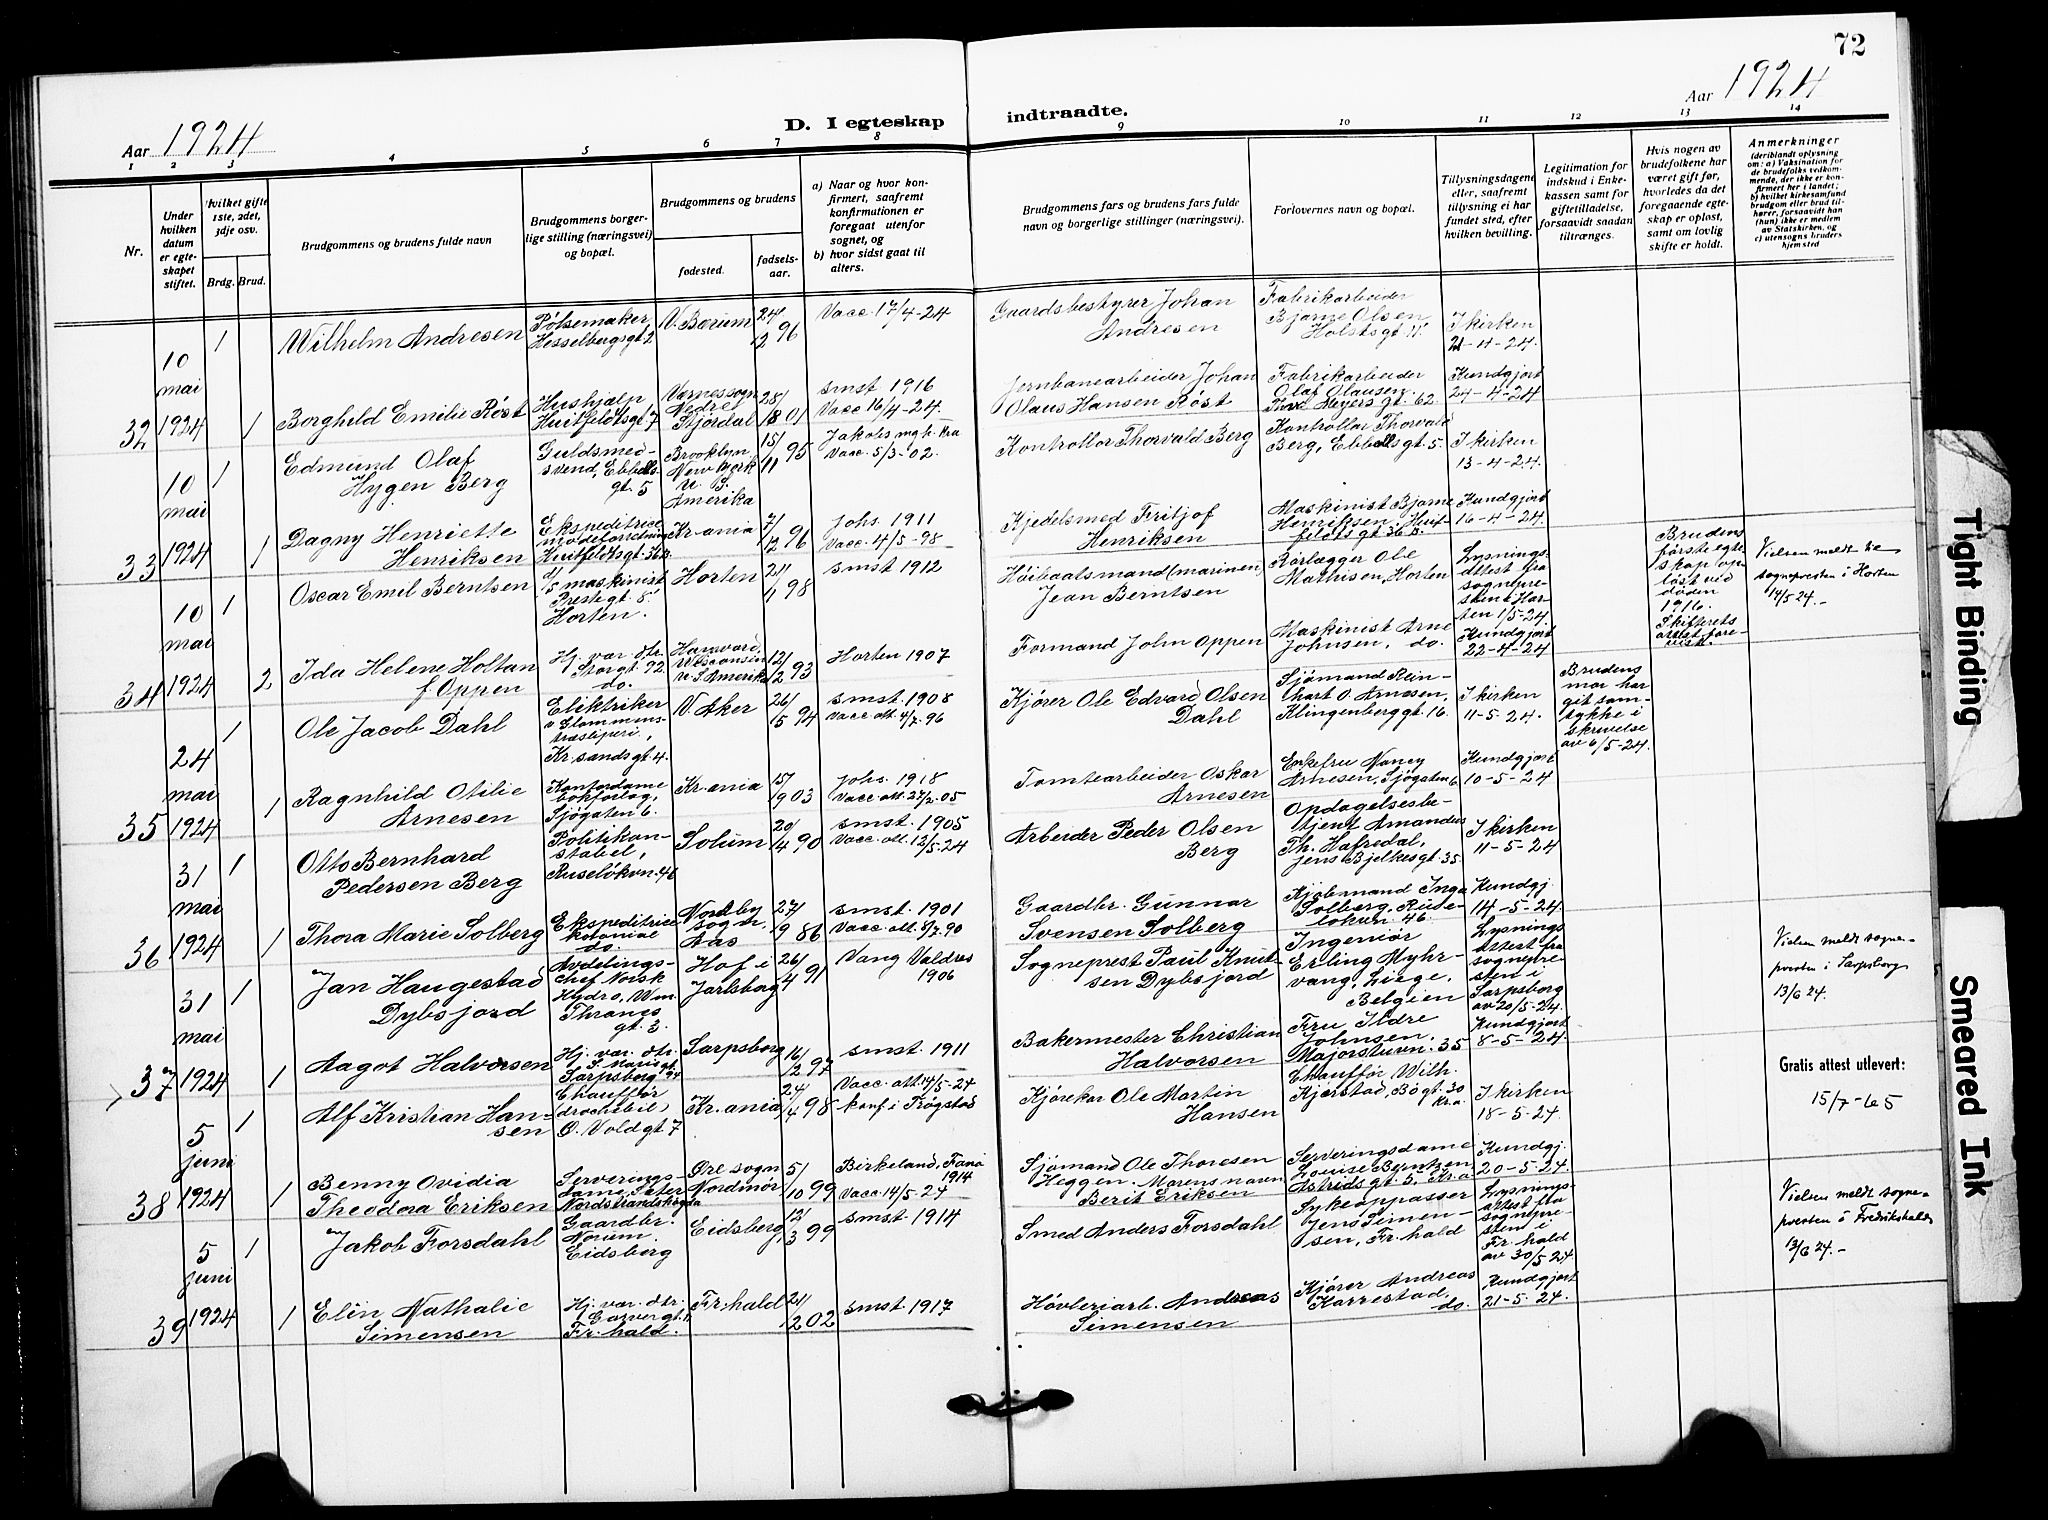 72
Aar 1924
D. I egteskap indtraadte.
Aar 1924
1 2 3 4 5 6 7 8 9 10 11 12 13 14
Nr.
Under hvilken datum er egteskapet stiftet.
Hvilket gifte 1ste, 2det, 3dje osv.
Brdg. Brud.
Brudgommens og brudens fulde navn
Brudgommens borgerlige stilling (næringsvei) og bopæl.
Brudgommens og brudens
fødested.
fødselsaar.
a) Naar og hvor konfirmert, saafremt konfirmationen er foregaat utenfor sognet, og
b) hvor sidst gaat til alters.
Brudgommens fars og brudens fars fulde navn og borgerlige stillinger (næringsvei).
Forlovernes navn og bopæl.
Tillysningsdagene eller, saafremt tillysning ei har fundet sted, efter hvilken bevilling.
Legitimation for indskud i Enkekassen samt for giftetilladelse, forsaavidt saadan tiltrænges.
Hvis nogen av brudefolkene har været gift før, hvorledes da det foregaaende egteskap er opløst, samt om lovlig skifte er holdt.
Anmerkninger
(deriblandt oplysning om: a) Vaksination for de brudefolks vedkommende, der ikke er konfirmert her i landet; b) hvilket kirkesamfund brudgom eller brud tilhører, forsaavidt han (hun) ikke er medlem av Statskirken, og c) utensogns bruders hjemsted
32
10 mai 1924
1
Wilhelm Andresen
Pølsemaker
Hesselbergsgt. 2
V. Borum
24/12 96
Vacc. 17/4-24
Gaardsbestyrer Johan
Andresen
Fabrikarbeider
Bjarne Olsen
Holstsgt. 11.
I kirken
21-4-24.
1
Borghild Emilie Røst
Hushjælp
Huitfeldtsgt. 7
Værnes sogn
Nedre
Stjørdal
28/8 01
smst 1916
Vacc 16/4-24.
Jernbanearbeider Johan
Olaus Hansen Røst
Fabrikarbeider
Olaf Olausen,
Thv. Meyers gt. 62.
Kundgjort
24-4-24
33
10 mai 1924
1
Edmund Olaf
Hygen Berg
Guldsmedsvend, Ebbellsgt. 5
Brooklyn
New York
U. S.
Amerika
15/11 95
Jakobs mgh. Kra
Vacc. 5/3-02.
Kontrollør Thorvald Berg
Kontrollør Thorvald
Berg, Ebbellsgt. 5.
I kirken
13-4-24.
1
Dagny Henriette
Henriksen
Ekspeditrice
modeforretning
Huitfeldtsgt. 36 B.
Kr.ania
7/12 96
Johs. 1911
Vacc. 4/5-98
Kjedelsmed Fritjof
Henriksen
Maskinist Bjarne
Henriksen, Huitfeldtsgt 36 B.
Kundgjort
16-4-24.
34
10 mai 1924
1
Oscar Emil Berntsen
maskinist
Prestegt. 8
Horten.
Horten
21/1 98
smst 1912
Høibaatsmand (marinen)
Jean Berntsen
Rørlægger Ole
Mathisen, Horten
Lysningsattest fra
sognepresten i Horten 1/5-24.
Brudens
første egteskap opløst ved
døden
1916.
Skifterets
attest forevist.
Vielsen meldt til
sognepresten i Horten
14/5 24.-
2
Ida Helene Holtan
f. Oppen
Hj. vær. dtr.
Storgt. 92.
do.
Harvard,
Wisconsin
U. S. Amerika
12/12 93
Horten 1907
Formand John Oppen
Maskinist Arne
Johnsen, do.
Kundgjort
22-4-24
35
24 mai 1924
1
Ole Jacob Dahl
Elektriker
v. Glommens
træsliperi,
Kr.sandsgt. 4.
V. Aker
26/5 94
smst. 1908
Vacc. att. 4/7-96
Kjører Ole Edvard Olsen
Dahl
Sjømand Reinhart O. Arnesen,
Klingenberggt. 16.
I kirken
11-5-24.
Brudens
mor har
git samtykke i
skrivelse
av 6/5-24.
1
Ragnhild Otilie
Arnesen
Kontordame
bokforlag,
Sjøgaten 6.
Kr.ania
15/9 03
Johs. 1918
Vacc. att. 27/2-05
Tomtearbeider Oskar
Arnesen
Enkefru Nancy
Arnesen, Sjøgaten 6
Kundgjort
10-5-24
36
31 mai 1924
1
Otto Bernhard
Pedersen Berg
Politikonstabel,
Ruseløkvn. 46
Solum
20/4 90
smst. 1905
Vacc. att. 12/5-24
Arbeider Peder Olsen
Berg
Opdagelsesbetjent Amandus
Th. Hafredal,
Jens Bjelkesgt. 35.
I kirken
11-5-24
1
Thora Marie Solberg
Ekspeditrice
kolonial
do.
Nordby
sogn,
Aas
27/9 86
smst. 1901
Vacc. att. 8/7-90
Gaardbr. Gunnar
Svensen Solberg
Kjøbmand Inga
Solberg, Ruseløkvn. 46.
Kundgj.
14-5-24.
37
31 mai 1924
1
Jan Haugestad
Dybsjord
Avdelingschef Norsk
Hydro, Wm
Thranes
gt. 3.
Hof i
Jarlsberg
26/4 91
Vang Valdres
1906
Sogneprest Paul Knutsen Dybsjord
Ingeniør
Erling Myhrvang, Liege,
Belgien
Lysnings
attest fra
sognepresten i
Sarpsborg
av 20/5-24.
Vielsen meldt sognepresten i Sarpsborg
13/6 24.
1
Aagot Halvorsen
Hj. vær. dtr.
St. Mariegt. 94
Sarpsborg
Sarpsborg
16/2 97
smst. 1911
Bakermester Christian
Halvorsen
Fru Ildre
Johnsen,
Majorstuvn. 35
Kundgjort
8-5-24.
Gratis attest utlevert:
15/7-65
38
5 juni 1924
1
Alf Kristian Hansen
Chauffør
(drochebil)
O. Voldgt. 7
Kr.ania
24/4 98
Vacc. att. 14/5-24
konf. i Trøgstad
Kjørekar Ole Martin
Hansen
Chauffør Wilh.
Kjerstad, Bögt. 30
Kr.a.
I kirken
18-5-24.
1
Benny Ovidia
Theodora Eriksen
Serveringsdame, Sæter
Nordstrandskogen
Øre sogn
Nordmør
5/10 99
Birkeland, Fana
1914
Vacc. 14/5-24
Sjømand Ole Thoresen
Heggen. Morens navn
Berit Eriksen
Serveringsdame
Louise Berntzen,
Astridsgt. 5, Kr.a
Kundgj.
20-5-24.
39
5 juni 1924
1
Jakob Forsdahl
Gaardbr.
Norum.
Eidsberg
Eidsberg,
12/3 99
smst. 1914
Smed Anders Forsdahl
Sykeopasser
Jens Simensen, Fr.hald
Lysningsattest fra
sognepresten i
Fr.hald
av 30/5-24
Vielsen meldt sognepresten i Fredrikshald
13/6 24.-
1
Elin Nathalie
Simensen
Hj. vær. dtr.
Garvergt. 11
Fr. hald.
Fr.hald
21/2 02
smst. 1917
Høvleriarb. Andreas
Simensen
Kjører Andreas
Karrestad,
do.
Kundgjort
21-5-24.
Tight Binding
Smeared Ink